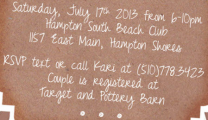 Saturday, July 17th 2013 from 6-10pm
Hampton South Beach Club
1157 East Main, Hampton Shores
RSVP text or call Kari at (510)778.3423
Couple is registered at
Target and Pottery Barn